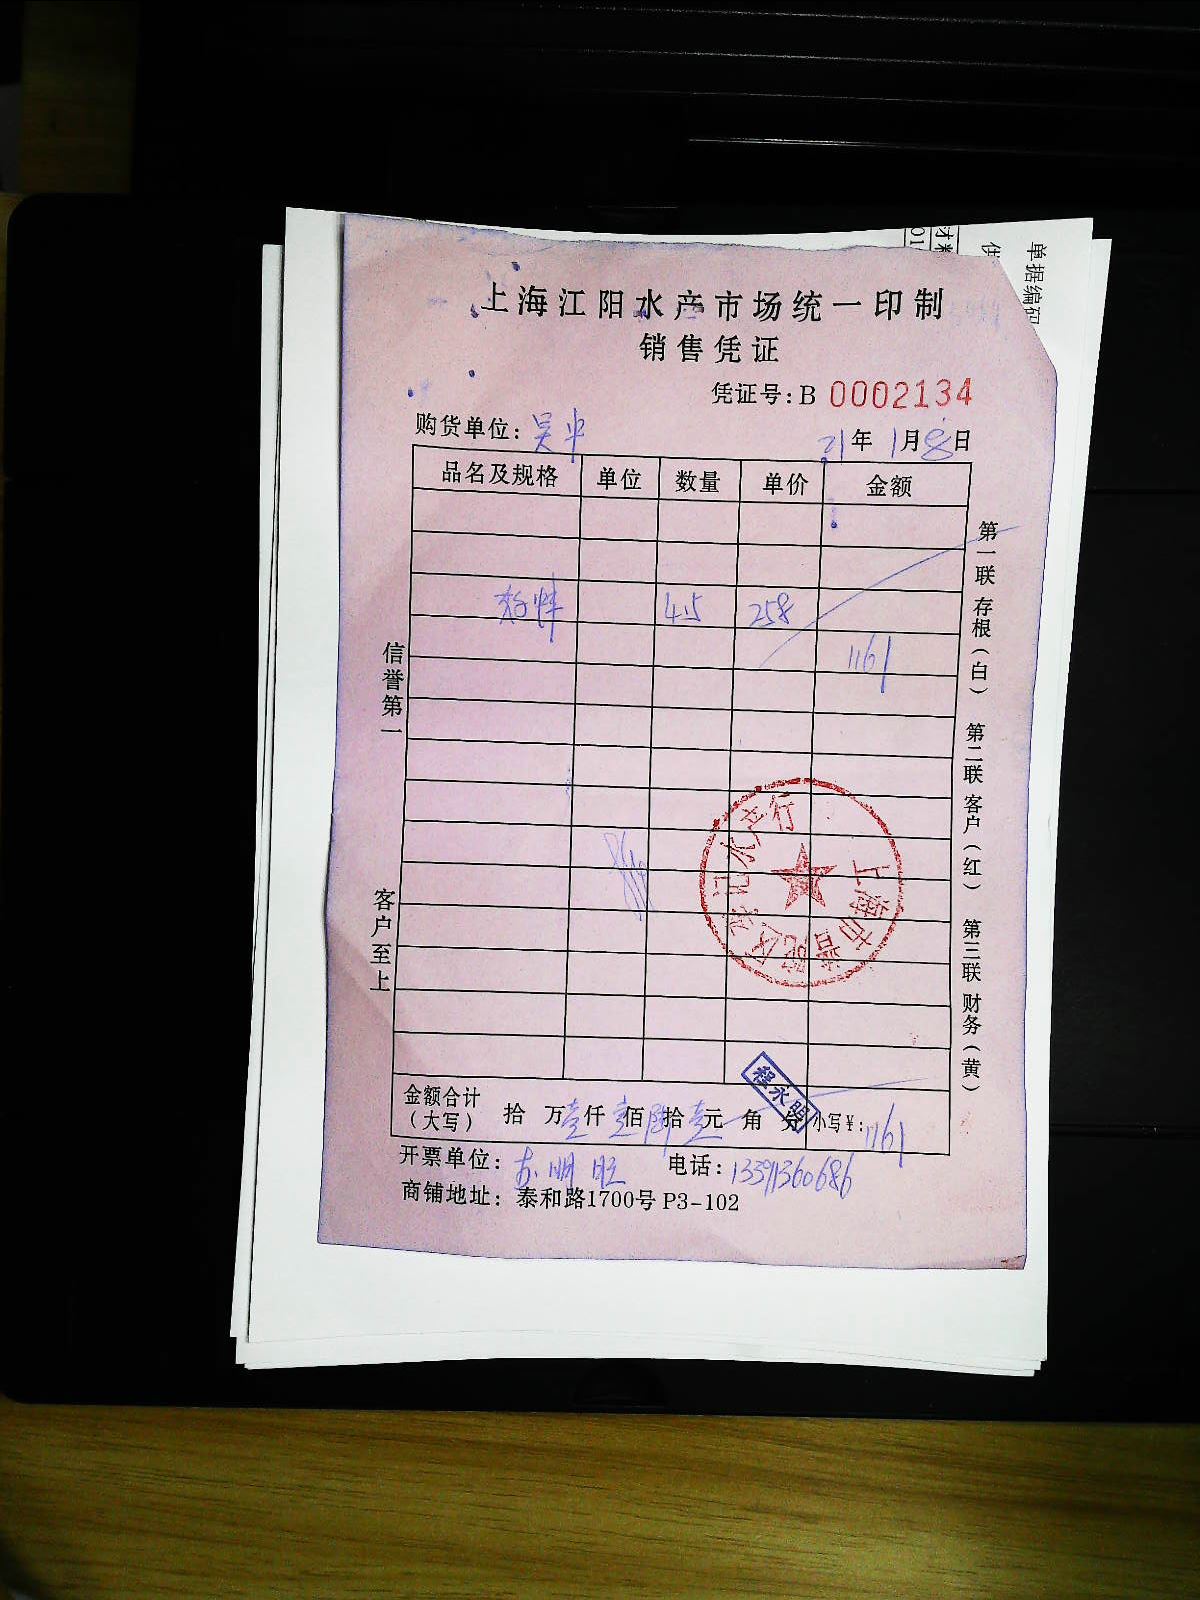 单据编码
材料
上海江阳水产市场统一印制
销售凭证
凭证号:B 0002134
购货单位: 吴 21年1月8日
品名及规格 单位 数量 单价 金额
4.5 258
1161
信誉第一
客户至上
第一联 存根(白) 第二联 客户(红) 第三联 财务(黄)
上海市普陀区 记水产行
程永明
金额合计
(大写) 拾 万壹仟壹佰陆拾壹元 角 分 小写¥:1161
开票单位: 电话:13391360686
商铺地址: 泰和路1700号 P3-102